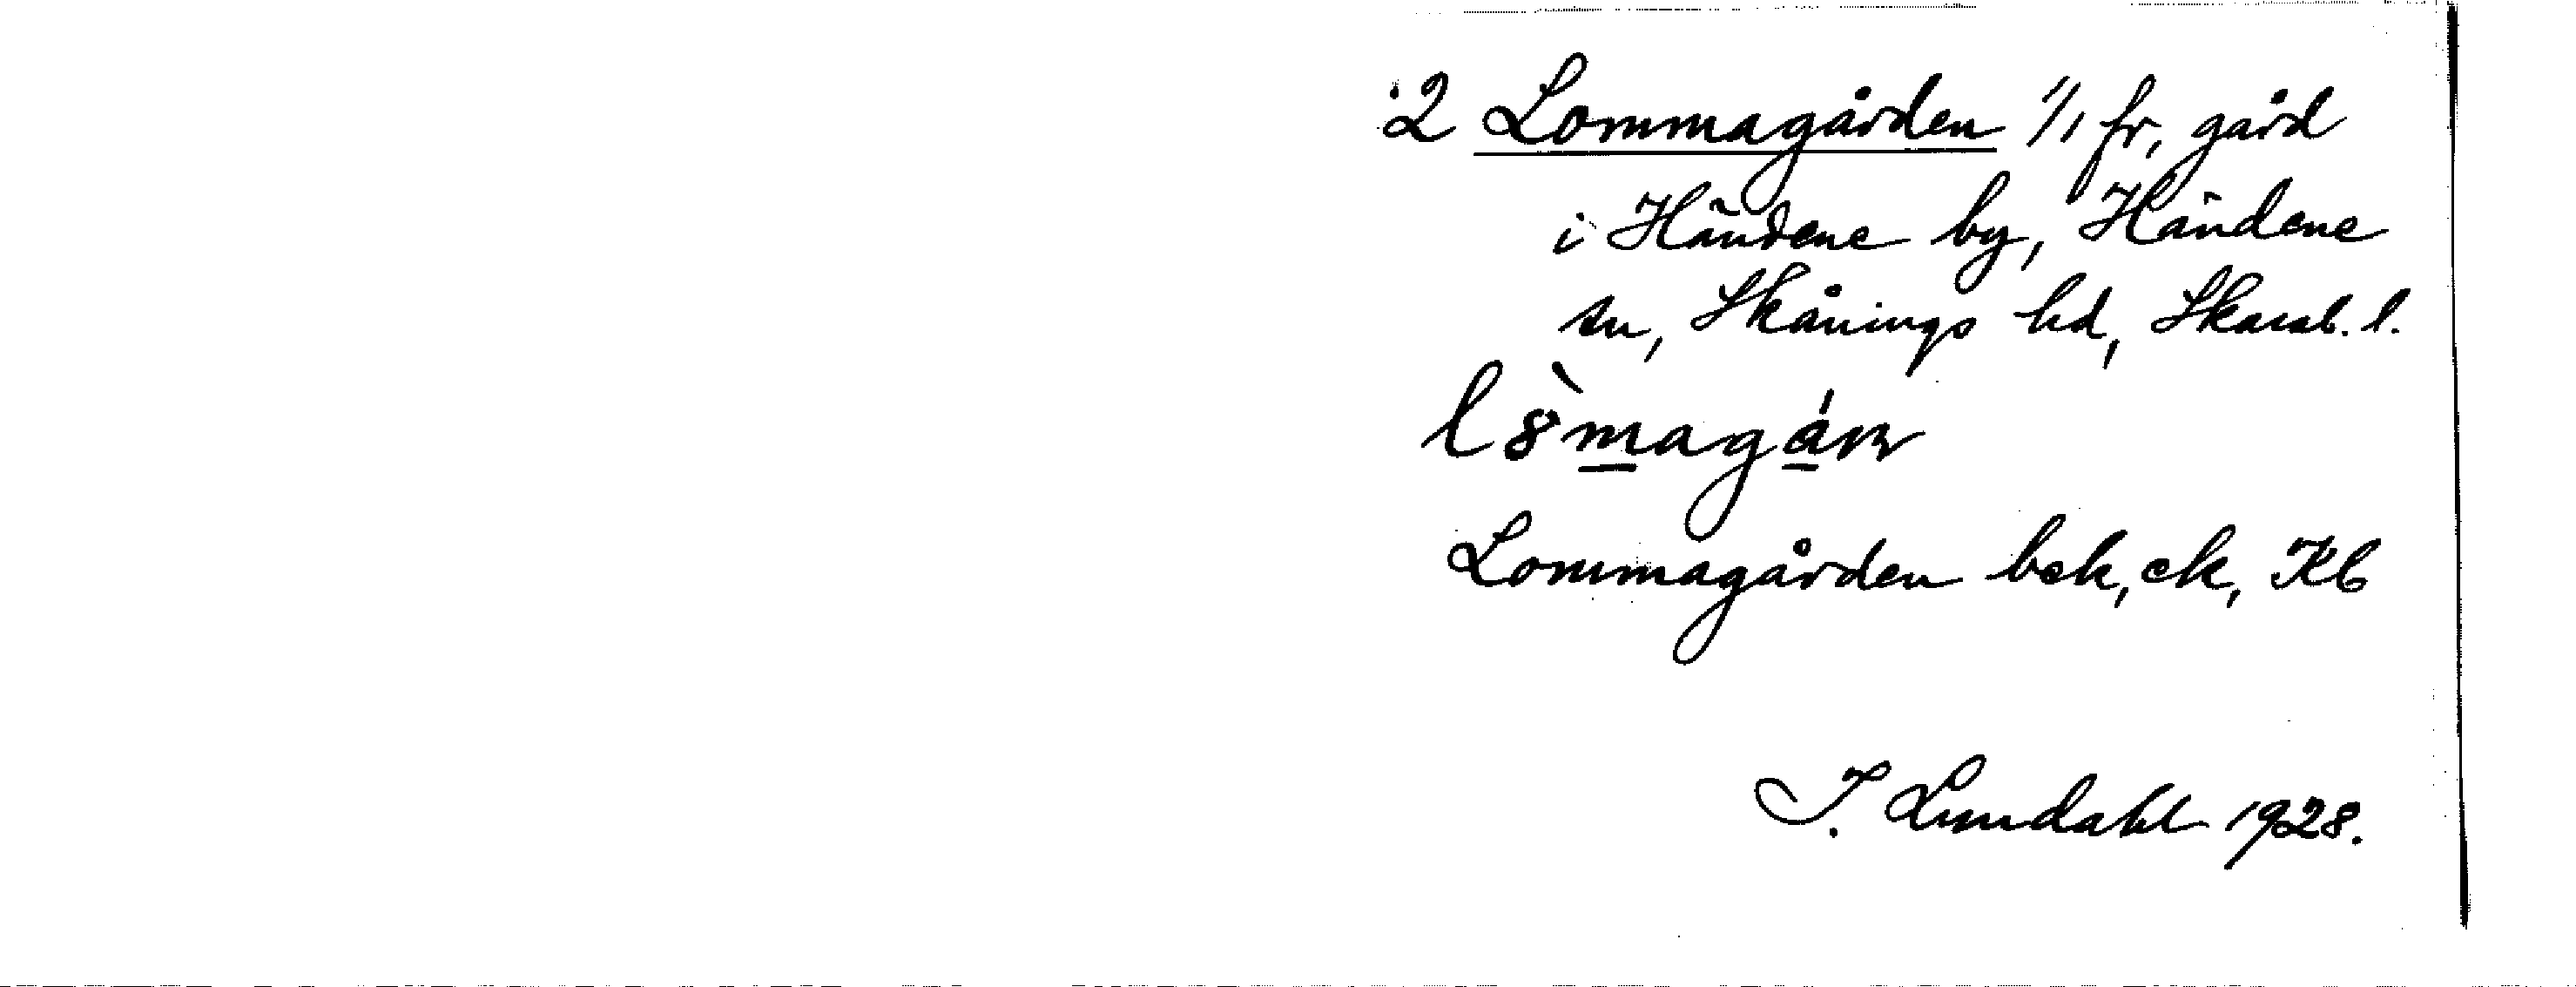 2 Lommagården 1/1 fr, gård
i Händene by, Händene
sn, Skånings hd, Skarab. l.
Lommagården bek, ek, Kb
I. Lundahl 1928.